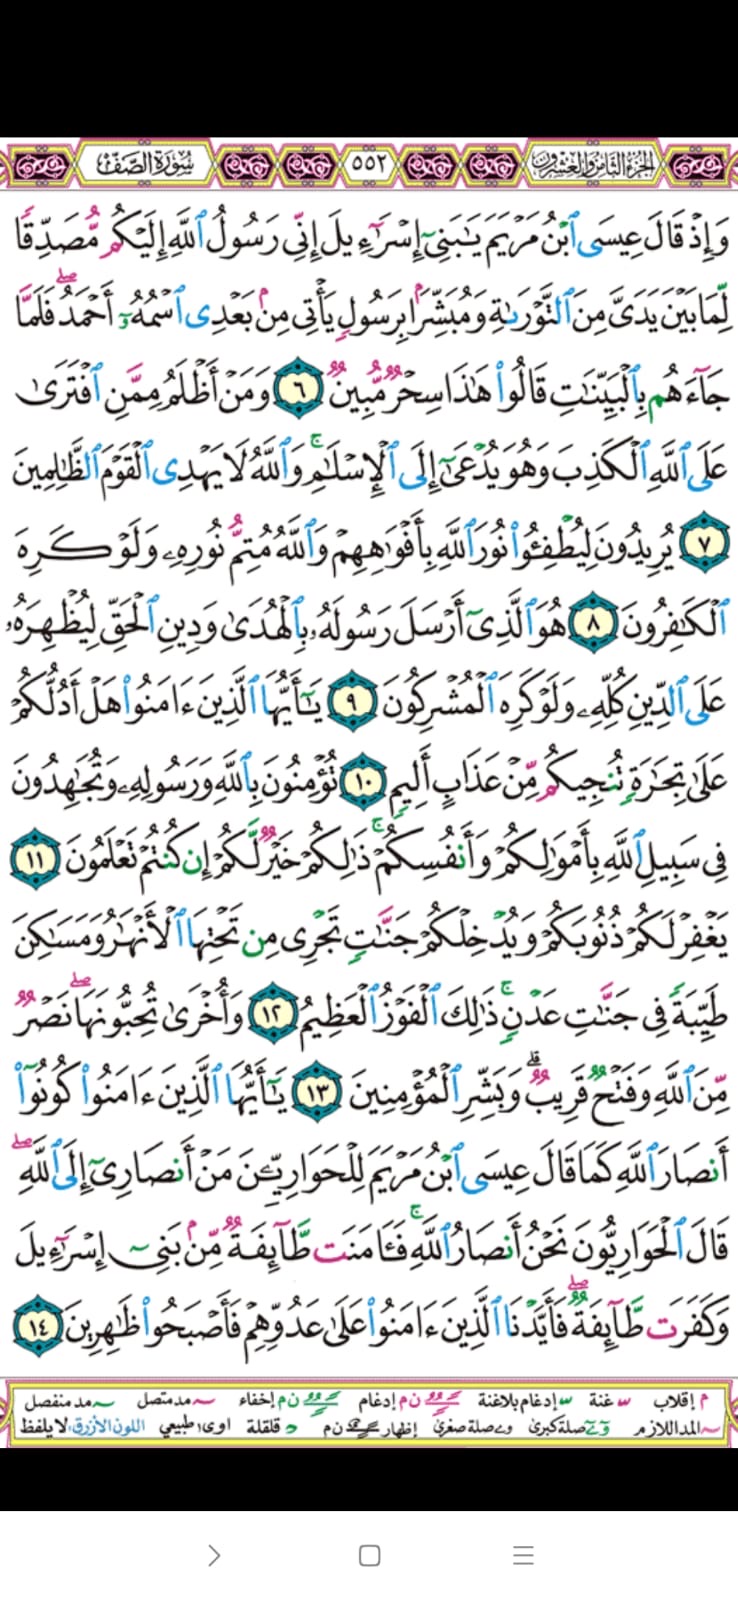 الجزء الثامن والعشرون ٥٥٢ سورة الصف
وَإِذْ قَالَ عِيسَى ٱبْنُ مَرْيَمَ يَٰبَنِىٓ إِسْرَٰٓءِيلَ إِنِّى رَسُولُ ٱللَّهِ إِلَيْكُم مُّصَدِّقًا
لِّمَا بَيْنَ يَدَىَّ مِنَ ٱلتَّوْرَىٰةِ وَمُبَشِّرًۢا بِرَسُولٍ يَأْتِى مِنۢ بَعْدِى ٱسْمُهُۥٓ أَحْمَدُ ۖ فَلَمَّا
جَآءَهُم بِٱلْبَيِّنَٰتِ قَالُوا۟ هَٰذَا سِحْرٌ مُّبِينٌ ٦ وَمَنْ أَظْلَمُ مِمَّنِ ٱفْتَرَىٰ
عَلَى ٱللَّهِ ٱلْكَذِبَ وَهُوَ يُدْعَىٰٓ إِلَى ٱلْإِسْلَٰمِ ۚ وَٱللَّهُ لَا يَهْدِى ٱلْقَوْمَ ٱلظَّٰلِمِينَ
٧ يُرِيدُونَ لِيُطْفِـُٔوا۟ نُورَ ٱللَّهِ بِأَفْوَٰهِهِمْ وَٱللَّهُ مُتِمُّ نُورِهِۦ وَلَوْ كَرِهَ
ٱلْكَٰفِرُونَ ٨ هُوَ ٱلَّذِىٓ أَرْسَلَ رَسُولَهُۥ بِٱلْهُدَىٰ وَدِينِ ٱلْحَقِّ لِيُظْهِرَهُۥ
عَلَى ٱلدِّينِ كُلِّهِۦ وَلَوْ كَرِهَ ٱلْمُشْرِكُونَ ٩ يَٰٓأَيُّهَا ٱلَّذِينَ ءَامَنُوا۟ هَلْ أَدُلُّكُمْ
عَلَىٰ تِجَٰرَةٍ تُنجِيكُم مِّنْ عَذَابٍ أَلِيمٍ ١٠ تُؤْمِنُونَ بِٱللَّهِ وَرَسُولِهِۦ وَتُجَٰهِدُونَ
فِى سَبِيلِ ٱللَّهِ بِأَمْوَٰلِكُمْ وَأَنفُسِكُمْ ۚ ذَٰلِكُمْ خَيْرٌ لَّكُمْ إِن كُنتُمْ تَعْلَمُونَ ١١
يَغْفِرْ لَكُمْ ذُنُوبَكُمْ وَيُدْخِلْكُمْ جَنَّٰتٍ تَجْرِى مِن تَحْتِهَا ٱلْأَنْهَٰرُ وَمَسَٰكِنَ
طَيِّبَةً فِى جَنَّٰتِ عَدْنٍ ۚ ذَٰلِكَ ٱلْفَوْزُ ٱلْعَظِيمُ ١٢ وَأُخْرَىٰ تُحِبُّونَهَا ۖ نَصْرٌ
مِّنَ ٱللَّهِ وَفَتْحٌ قَرِيبٌ ۗ وَبَشِّرِ ٱلْمُؤْمِنِينَ ١٣ يَٰٓأَيُّهَا ٱلَّذِينَ ءَامَنُوا۟ كُونُوٓا۟
أَنصَارَ ٱللَّهِ كَمَا قَالَ عِيسَى ٱبْنُ مَرْيَمَ لِلْحَوَارِيِّـۧنَ مَنْ أَنصَارِىٓ إِلَى ٱللَّهِ ۖ
قَالَ ٱلْحَوَارِيُّونَ نَحْنُ أَنصَارُ ٱللَّهِ ۚ فَـَٔامَنَت طَّآئِفَةٌ مِّنۢ بَنِىٓ إِسْرَٰٓءِيلَ
وَكَفَرَت طَّآئِفَةٌ ۖ فَأَيَّدْنَا ٱلَّذِينَ ءَامَنُوا۟ عَلَىٰ عَدُوِّهِمْ فَأَصْبَحُوا۟ ظَٰهِرِينَ ١٤
م إقلاب غنة إدغام بلاغنة ن م إدغام ن م إخفاء مد متصل مد منفصل
المد اللازم صلة كبرى صلة صغرى إظهار ن م قلقلة اوى طبيعي اللون الأزرق: لا يلفظ